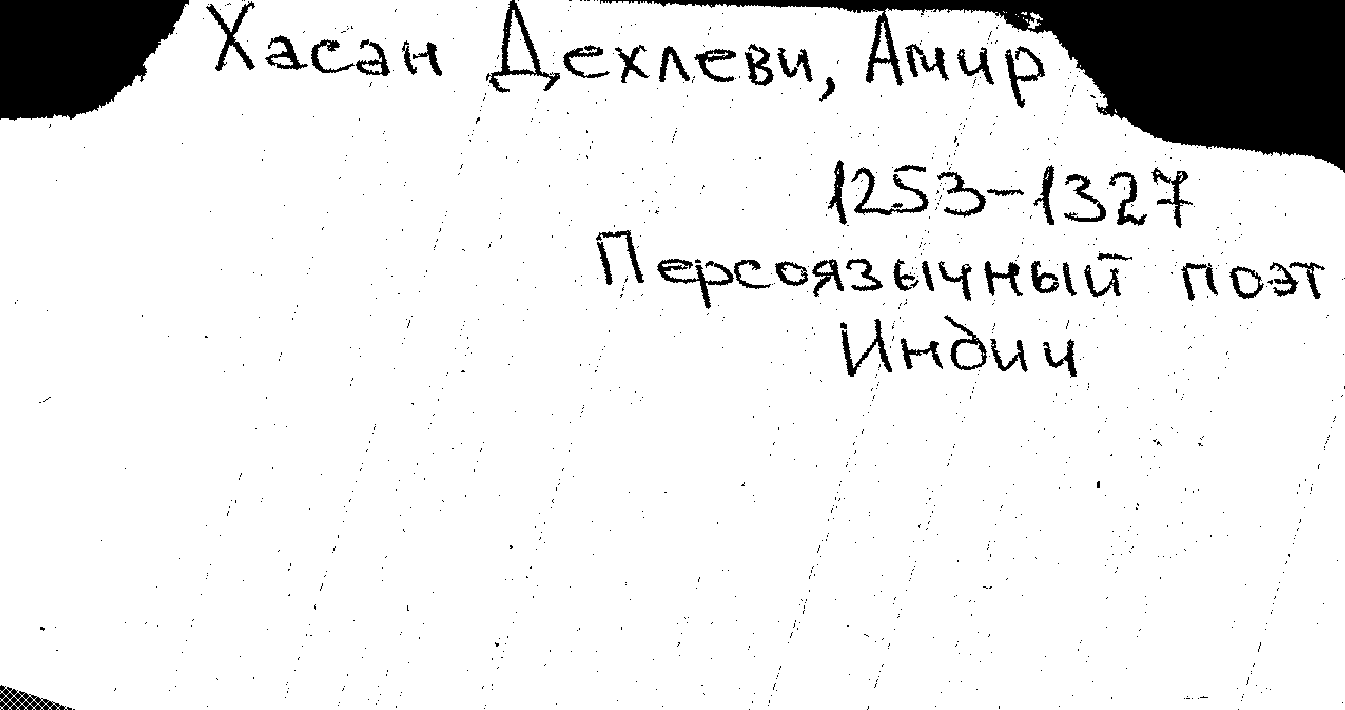 Хасан Дехлеви, Амир
1253-1327
Персоязычный поэт
Индии